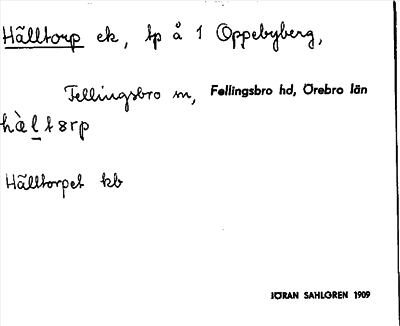 Hälltorp ek, tp å 1 Oppebyberg,
Fellingsbro sn, Fellingsbro hd, Örebro län
hàl̲tɜrp
Hälltorpet kb
JÖRAN SAHLGREN 1909